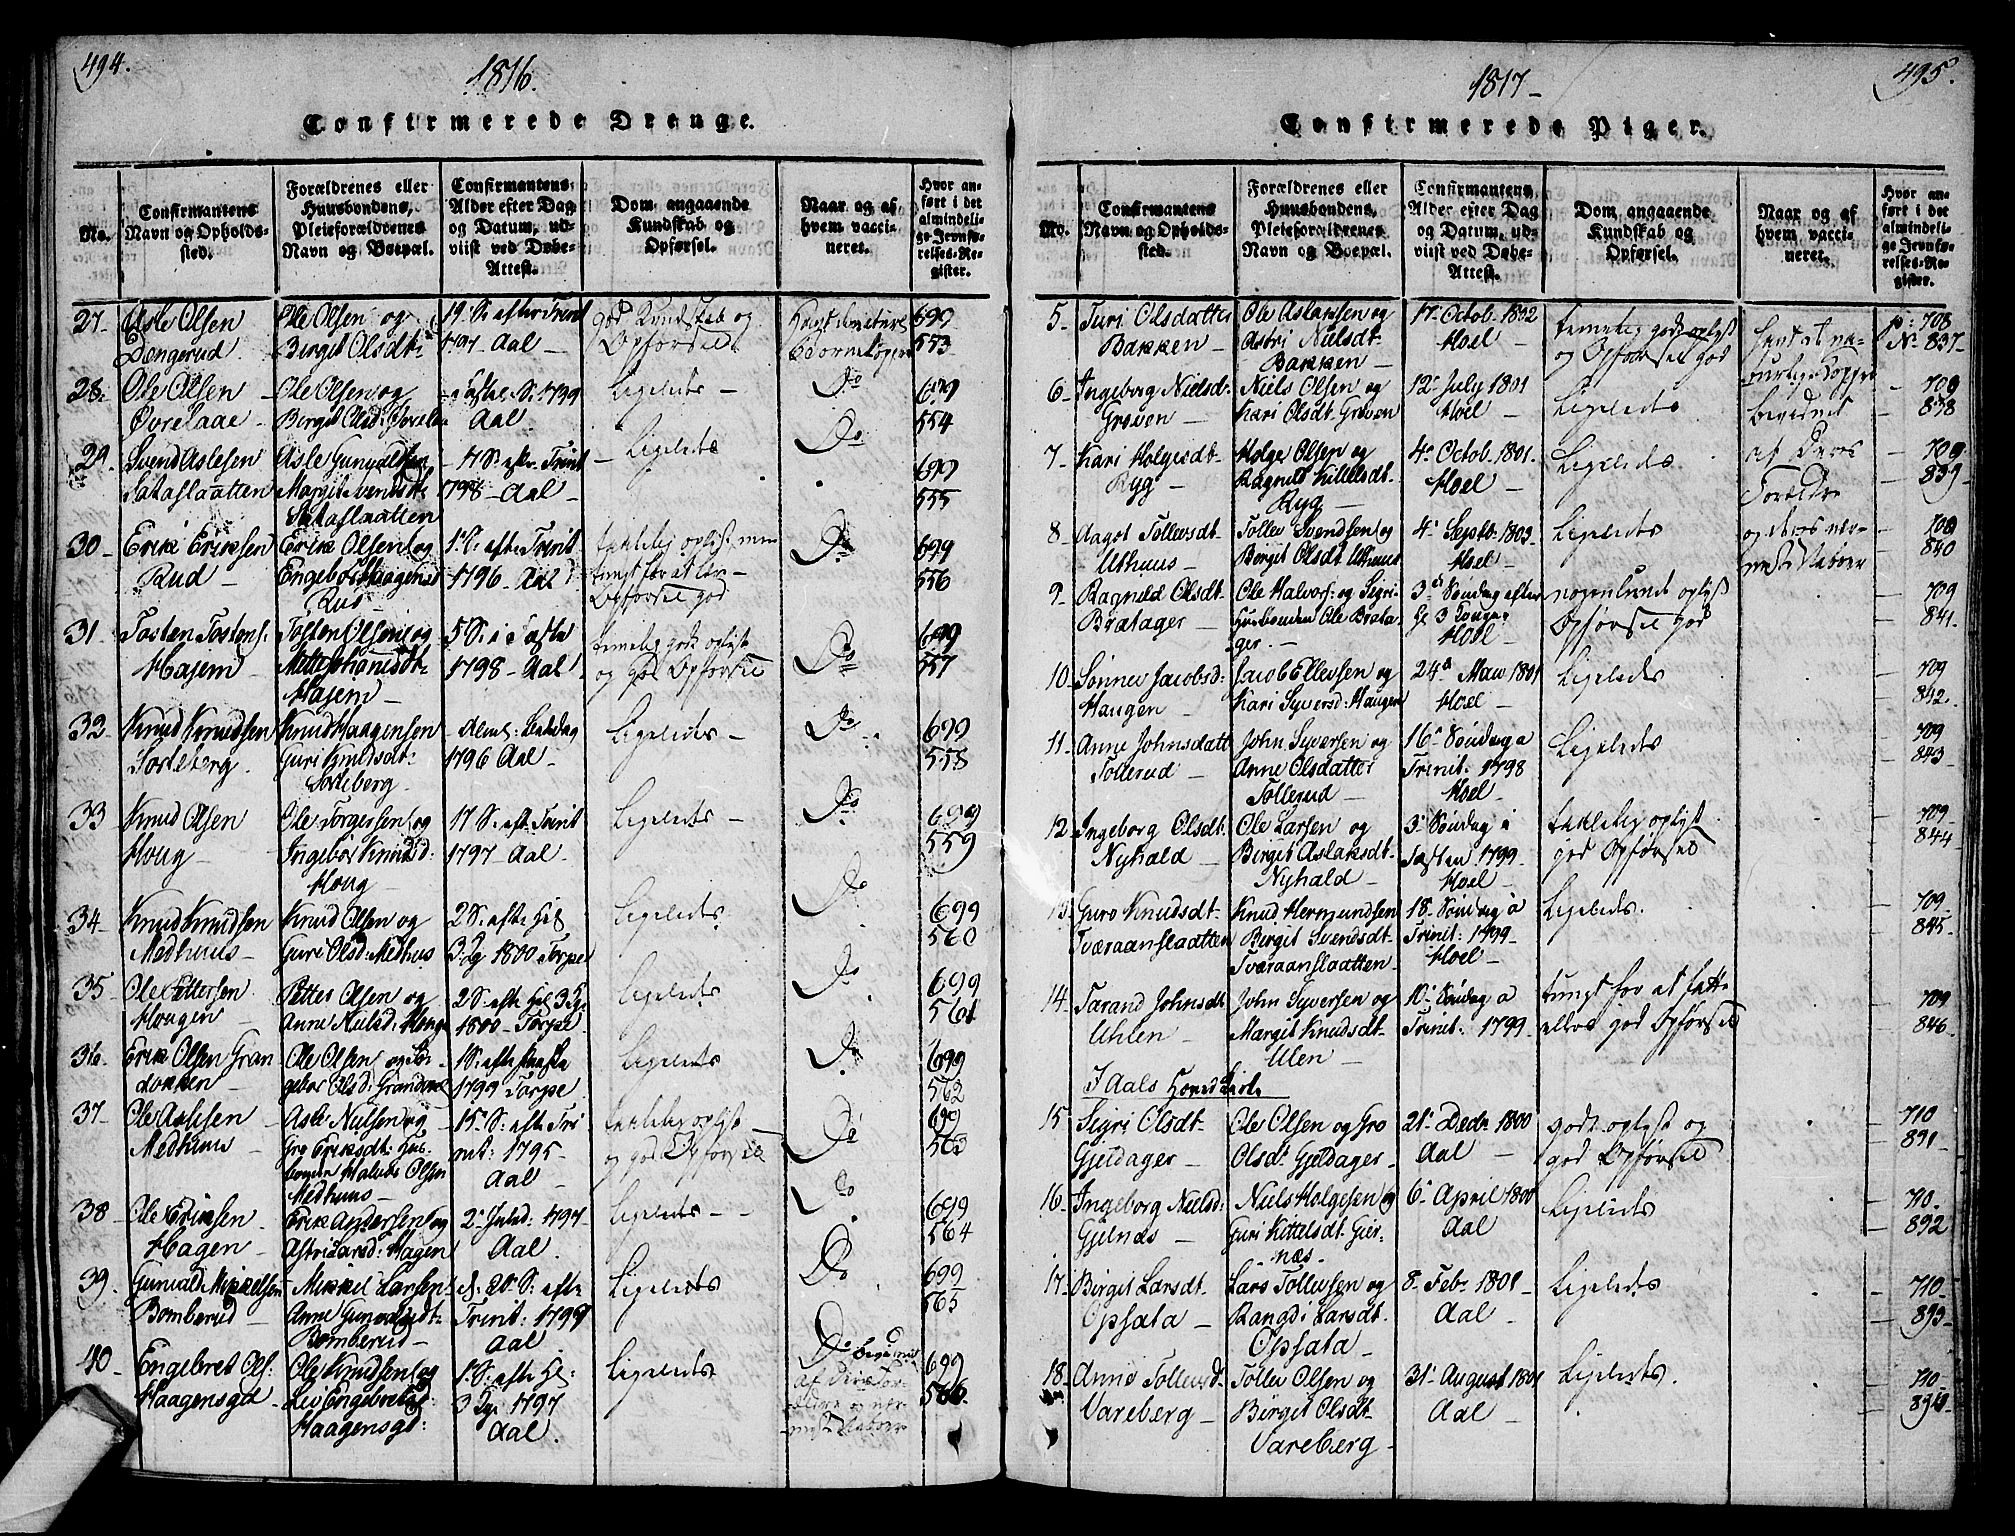 494.
1816.
Confirmerede Drenge.
No.
Confirmantens Navn og Opholdssted.
Forældrenes eller Huusbondens, Pleieforældrenes Navn og Boepæl.
Confirmantens Alder efter Dag og Datum, udviist ved Døbe-Attest.
Dom angaaende Kundskab og Opførsel.
Naar og af hvem vaccineret.
Hvor anført i det almindelige Jevnførelses-Register.
27 Asle Olsen Dengerud. Ole Olsen og Birgit Olsdt: 19. S. efter Trinit 1797 Aal god Kundskab og Opførsel 699 553
28. Ole Olsen Øvrelaae Ole Olsen og Birgit Olsd: 1799 Aal Ligeledes Do 699 554
29. Svend Aslesen Sataslaatten Asle Gunvalsen Margit Svendsdt Sataslaatten 17 S. eftr Trinit 1798 Aal Ligeledes Do 699 555
30. Erik Eriksen Rud Erik Olsen og Engebor Haagensd Rus 1796 Aal taalelig oplyst, men tungt for at lære Opførsel god Do 699 556
31 Tosten Tostens: Hajem Tosten Olsen og Mette Johanisdt Hajem 5 S. i Faste 1798 Aal temelig godt oplyst og god Opførsel Do 699 557
32 Knud Knudsen Sorteberg. Knud Haagensen Guri Knutsdt: Sorteberg 1796 Aal Ligeledes Do 699 558
33 Knud Olsen Houg Ole Torgersen og Ingebor Knudsd: Houg 17 S. eft. Trinit 1797 Aal Ligeledes Do 699 559
34 Knud Knudsen Medhuus Knud Olsen og Guri Olsd: Medhuus 2 S. efte Hel 3 Kg 1800 Torpe Ligeledes Do 699 560
35 Ole Pettersen Hougen Petter Olsen og Anne Nielsd: Houge 2 S. efte Hel 3 Kg 1800 Torpe Ligeledes Do 699 561
36. Erik Olsen Grandokken Ole Olsen og Ingebor Olsd: 1 S. efte Paaske 1799 Torpe Ligeledes Do 699 562
37. Ole Aslesen Medhuus Asle Nielsen og Gro Eriksdt: Medhuus 15 S. efte Trinit: 1795 Aal taalelig oplyst og god Opførsel Do 699 563
38 Ole Eriksen Hagen Erik Andersen og Astri Larsd: Hagen 2 Juled: 1797 Aal. Ligeledes Do 699 564
39. Gunvald Mikkelsen Bomberud Mikkel Larsen Anne Gunvaldsdt Bomberud 20 S. efte Trinit: 1799 Aal Ligeledes Do 699 565
40 Engebret Ols: Haagensgd Ole Knudsen og Liv Engebretsd: Haagensgd: 1 S. efte Hel: 3 Kg: 1797 Aal. Ligeledes Do bevidnet af deres Forældre og nærmeste Naboer 699 566
495.
1817
Confirmerede Piger.
No.
Confirmantens Navn og Opholdssted.
Forældrenes eller Huusbondens, Pleieforældrenes Navn og Boepæl.
Confirmantens Alder efter Dag og Datum, udviist ved Døbe-Attest.
Dom angaaende Kundskab og Opførsel.
Naar og af hvem vaccineret.
Hvor anført i det almindelige Jevnførelses-Register.
5 Turi Olsdatter Bakken Ole Aslansen og Astri Nielsdt Bakken 17 Octob. 1802 Hoel temelig godt oplyst og Opførsel god p: 708 No 837
6 Ingeborg Nielsd: Grøven Niels Olsen og Kari Olsdt Grøven 12 July 1801 Hoel Ligeledes 709 838
7 Kari Holgesdt Ryg Holge Olsen og Ragnild Killelsdt Ryg 4 Octob. 1801. Hoel Ligeledes 709 839
8 Aagot Tollevsdt Uthuus Tollev Svendsen og Birgit Olsdt Uthuus 4 Septb: 1803 Hoel Ligeledes 709 840
9 Ragnild Olsdt Bratager Ole Halvors: og Sigri Huusbonden Ole Bratager 3 Søndag efter Hl 3 Konger Hoel nogenlunde oplyst Opførsel god 709 841.
10 Sønnev Jacobsd: Haugen Jacob Ellevsen og Kari Syversd: Haugen 24 May 1801 Hoel Ligeledes 709 842.
11 Anne Johnsdatt Tollerud John Syversen og Anne Olsdatter Tollerud 16 Søndag a Trinit: 1798 Hoel Ligeledes 709 843
12 Ingeborg Olsdt. Nyhald Ole Larsen og Birgit Aslaksdt Nyhald 3 Søndag i Fasten 1799 Hoel taalelig oplyst god Opførsel 709 844
13 Guro Knudsdt Tværaanslaatten Knud Hermundsen Birgit Svendsdt Tværaanslaatten 18 Søndag a Trinit: 1799 Hoel Ligeledes. 709 845
14 Tarand Johnsdt Uhlen John Syversen og Margit Knudsdt Ulen 10 Søndag a Trinit: 1799 tungt for at fatte ellers god Opførsel 709 846
I Aals Hoved Kirke
15 Sigri Olsdt Gjeldager Ole Olsen og Gro Olsdt Gjeldager 21 Decbr 1800 Aal godt oplyst og god Opførsel 710 891
16 Ingeborg Nielsd: Gjelnæs Niels Holgesen og Guri Kittelsdt. Giernæs 6 April 1800 Aal Ligeledes 710 892
17 Birgit Larsdt Opsata Lars Tollevsen og Rangdi Larsdt. Opsata 8 Febr 1801 Aal Ligeledes 710 893
18 Anne Tollevsd Vareberg Tollev Olsen og Birgit Olsdt Vareberg 31 August 1801 Aal Ligeledes. 710 894